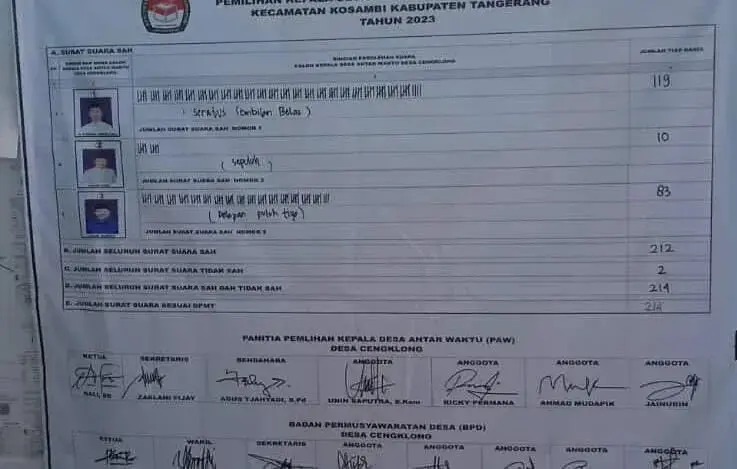 KECAMATAN KOSAMBI KABUPATEN TANGERANG
TAHUN 2023
A. SURAT SUARA SAH
RINCIAN PEROLEHAN SUARA
CALON KEPALA DESA ANTAR WAKTU DESA CENGKLONG
JUMLAH TIAP BARIS
1
119
seratus Sembilan Belas )
JUMLAH SURAT SUARA SAH NOMOR 1
2
10
( sepuluh )
JUMLAH SURAT SUARA SAH NOMOR 2
3
83
( Delapan puluh tiga )
JUMLAH SURAT SUARA SAH NOMOR 3
B. JUMLAH SELURUH SURAT SUARA SAH 212
C. JUMLAH SELURUH SURAT SUARA TIDAK SAH 2
D. JUMLAH SELURUH SURAT SUARA SAH DAN TIDAK SAH 214
E. JUMLAH SURAT SUARA SESUAI DPMT 214
PANITIA PEMLIHAN KEPALA DESA ANTAR WAKTU (PAW)
DESA CENGKLONG
KETUA SEKRETARIS BENDAHARA ANGGOTA ANGGOTA ANGGOTA ANGGOTA
ZAELANI FIJAY AGUS TJAHYADI, S.Pd UNIN SAPUTRA, S.Kom RICKY PERMANA AHMAD MUDAPIK JAINUDIN
BADAN PERMUSYAWARATAN DESA (BPD)
DESA CENGKLONG
KETUA WAKIL SEKRETARIS ANGGOTA ANGGOTA ANGGOTA ANGGOTA ANGGOTA